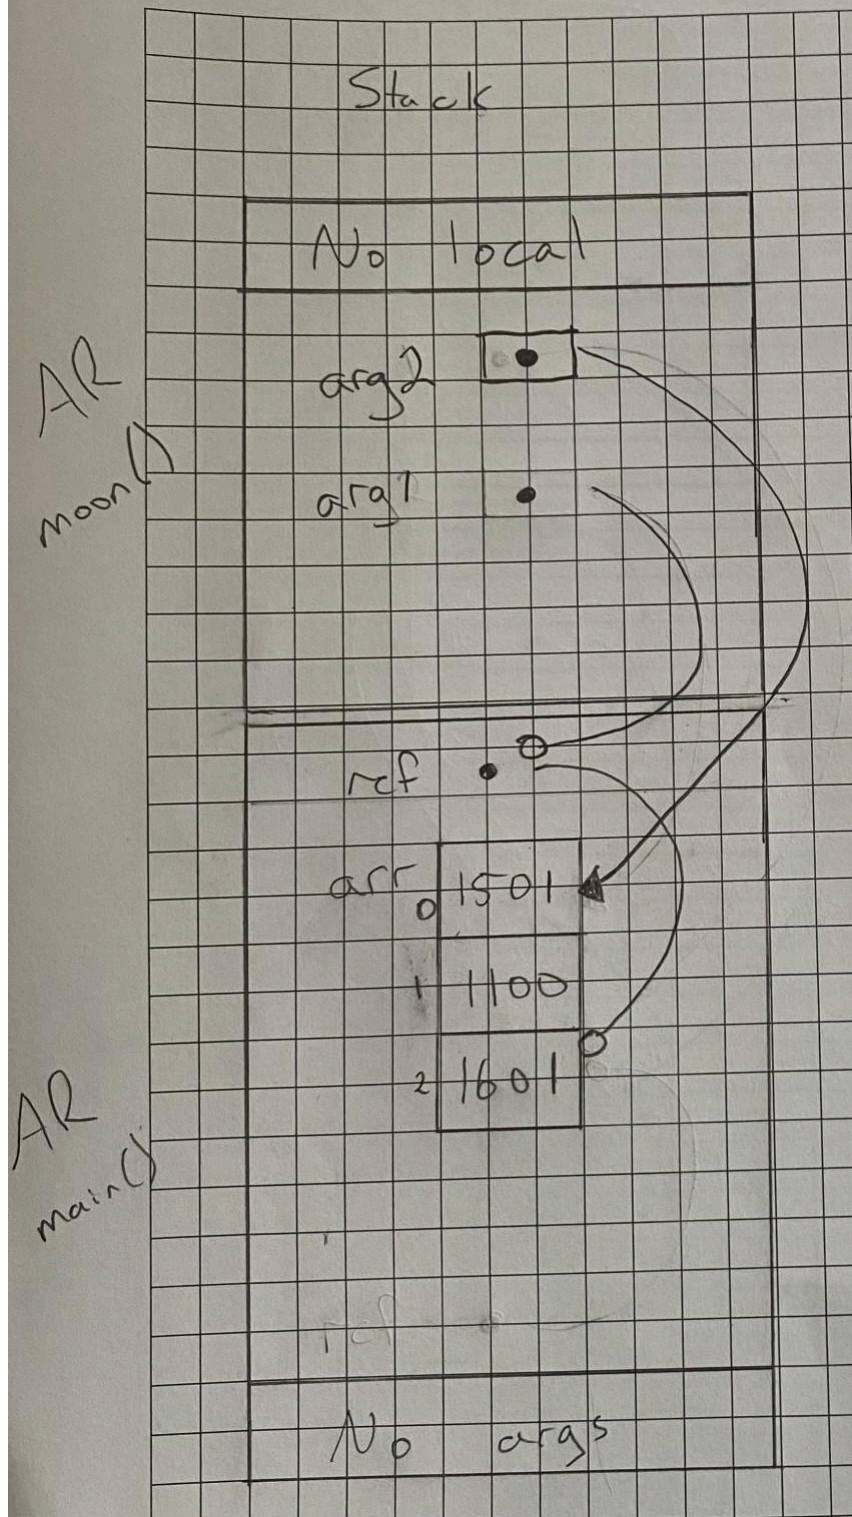 Stack
No local
AR
moon()
arg2
arg1
ref
arr
0 1501
1 1100
2 1601
AR
main()
ref
No args